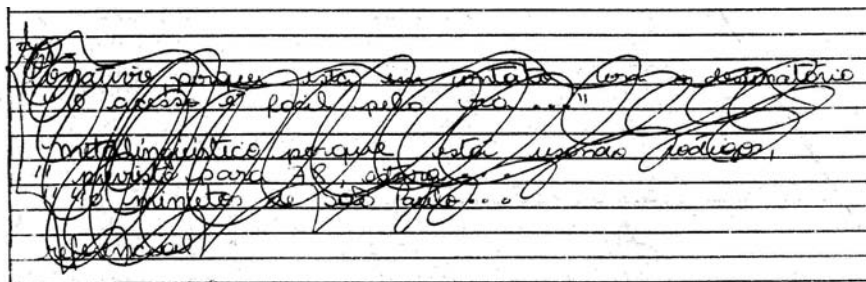 conative porque está em contato com o destinatário
"O acesso é fácil pela via ..."
metalinguístico porque está usando códigos,
" previsto para 78,
"10 minutos de São Paulo...
referencial